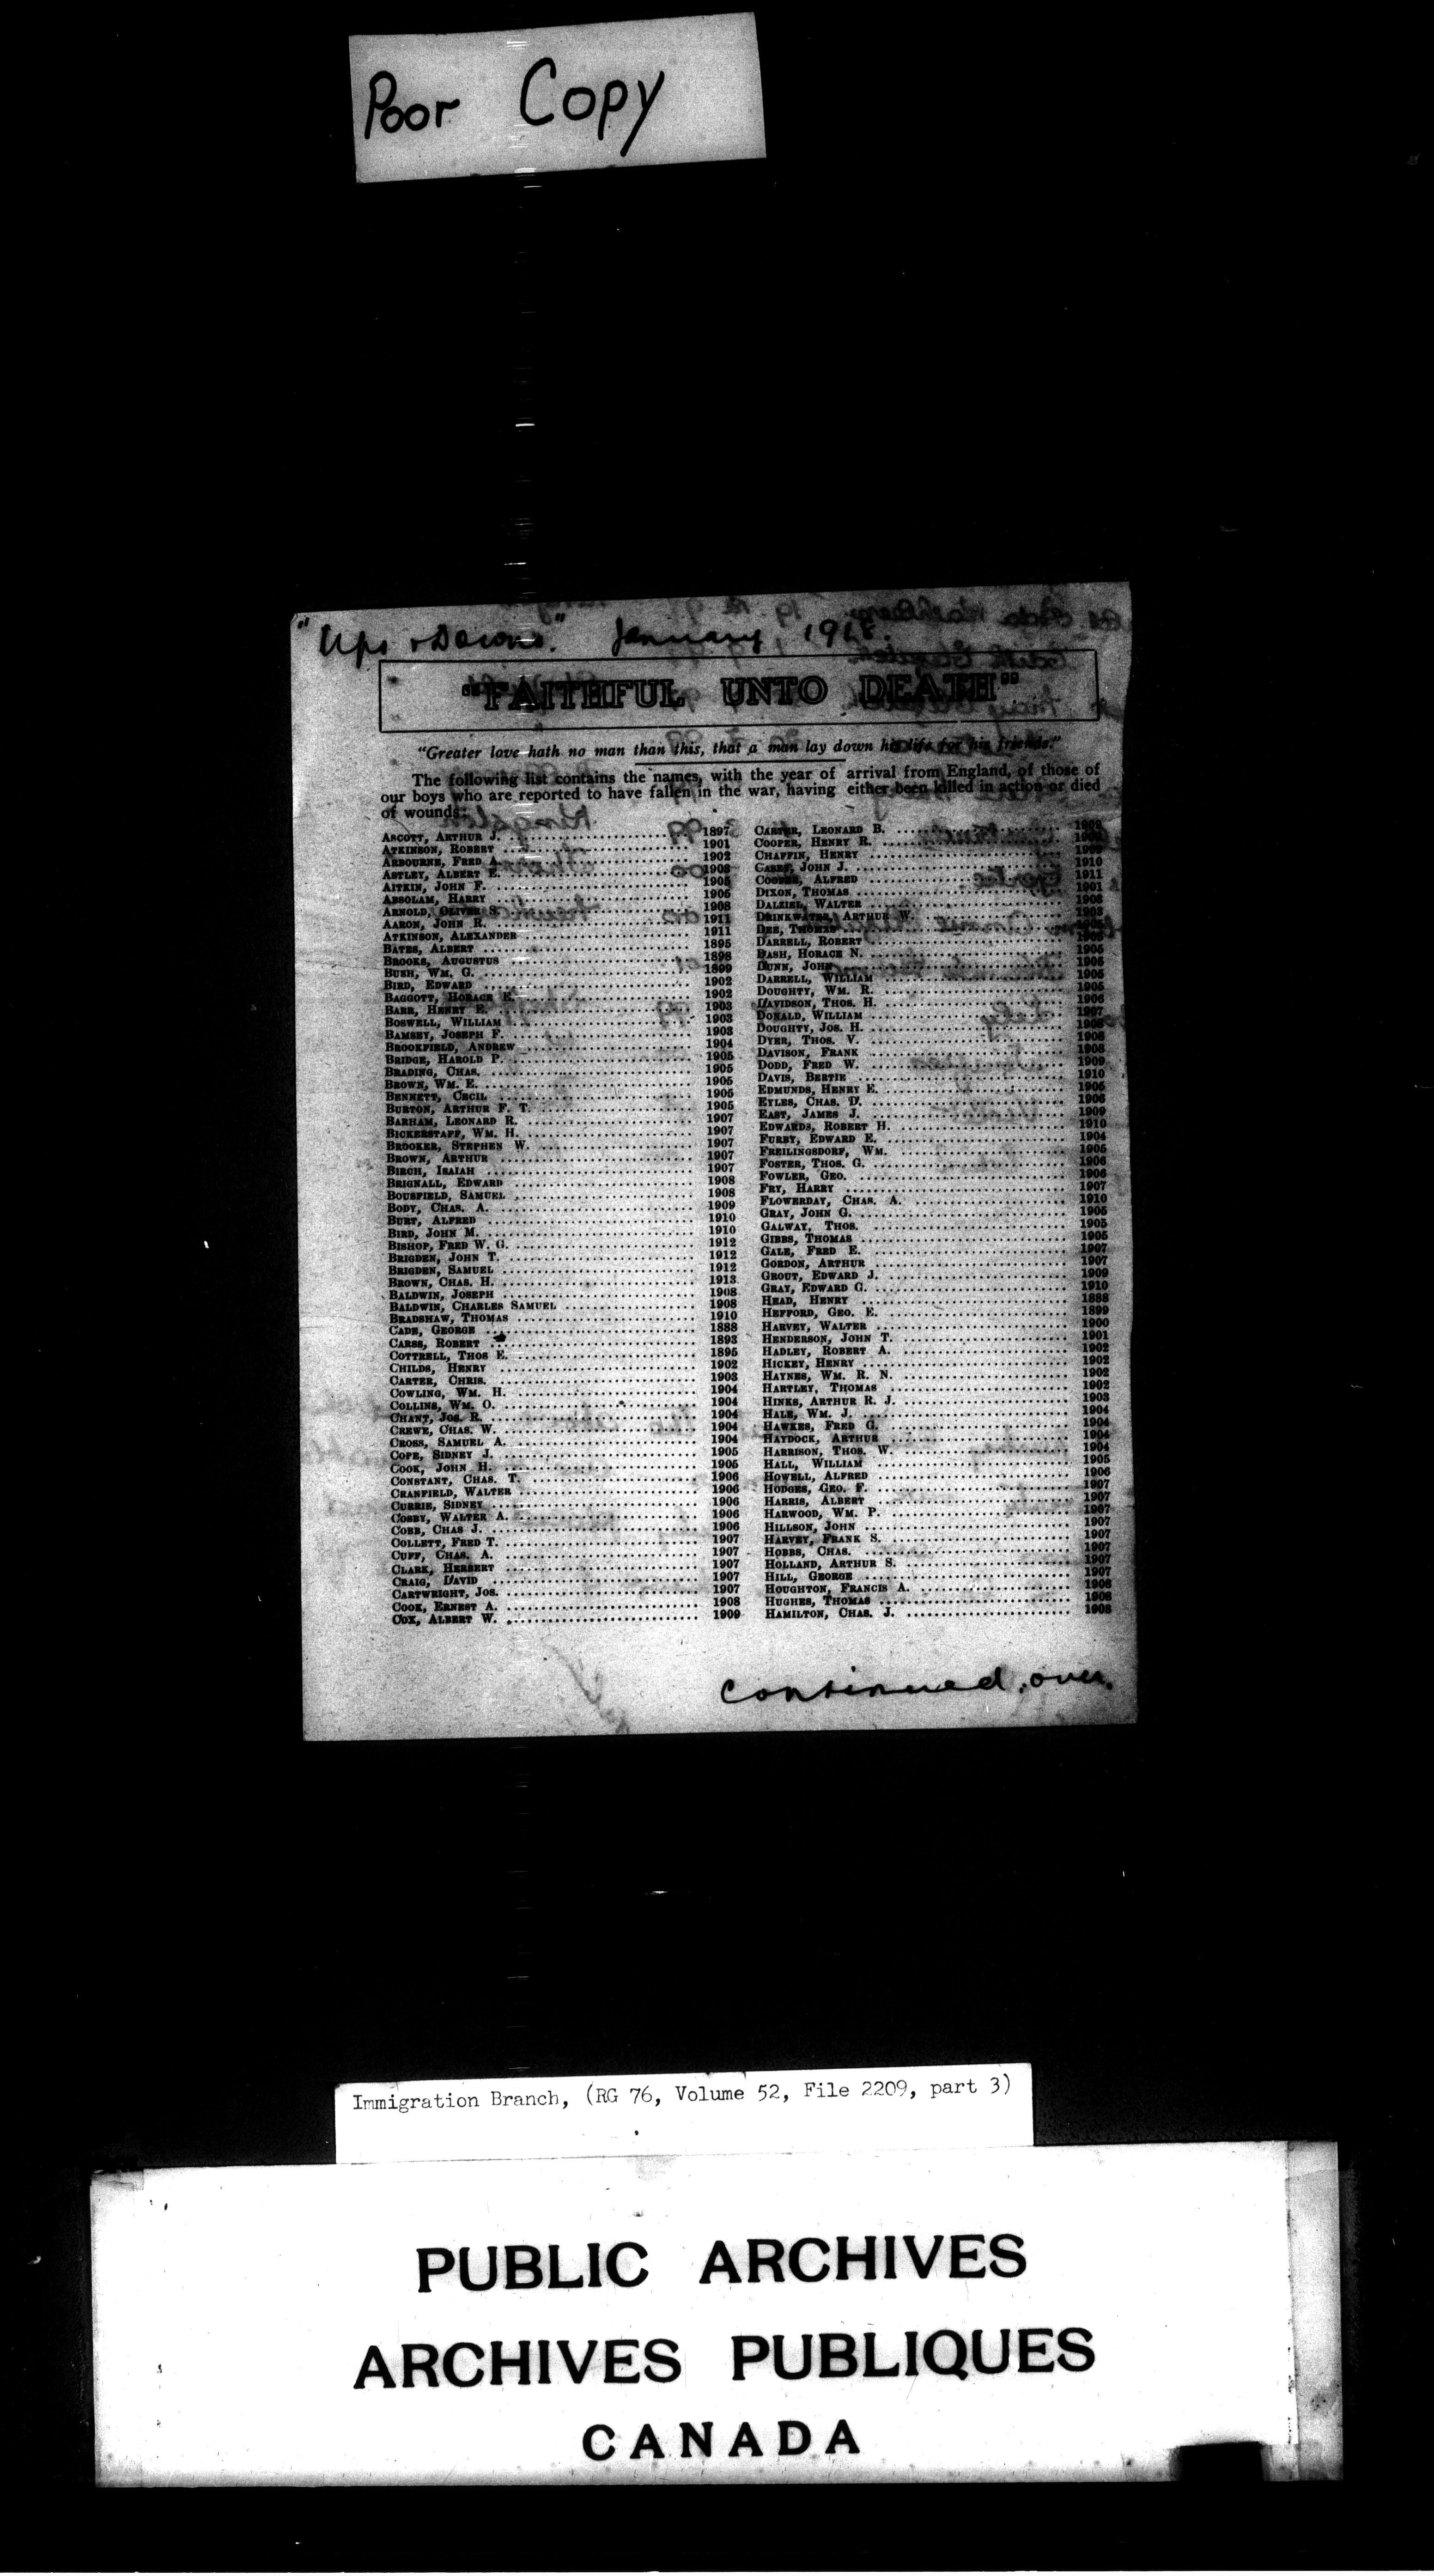 Poor Copy
"Ups & Downs." January 1918.
"FAITHFUL UNTO DEATH"
"Greater love hath no man than this, that a man lay down his life for his friends."
The following list contains the names, with the year of arrival from England, of those of
our boys who are reported to have fallen in the war, having either been killed in action or died
of wounds:
ASCOTT, ARTHUR J. 1897
ATKINSON, ROBERT 1901
ARBOURNE, FRED A. 1902
ASTLEY, ALBERT E. 1903
AITKIN, JOHN F. 1905
ABSOLAM, HARRY 1905
ARNOLD, OLIVER S. 1908
AARON, JOHN R. 1911
ATKINSON, ALEXANDER 1911
BATES, ALBERT 1895
BROOKS, AUGUSTUS 1898
BUSH, WM. G. 1899
BIRD, EDWARD 1902
BAGGOTT, HORACE E. 1902
BARR, HENRY E. 1903
BOSWELL, WILLIAM 1903
BAMSEY, JOSEPH F. 1903
BROOKFIELD, ANDREW 1904
BRIDGE, HAROLD P. 1905
BRADING, CHAS. 1905
BROWN, WM. E. 1905
BENNETT, CECIL 1905
BURTON, ARTHUR F. T. 1905
BARHAM, LEONARD R. 1907
BICKERSTAFF, WM. H. 1907
BROOKER, STEPHEN W. 1907
BROWN, ARTHUR 1907
BIRCH, ISAIAH 1907
BRIGNALL, EDWARD 1908
BOUSFIELD, SAMUEL 1908
BODY, CHAS. A. 1909
BURT, ALFRED 1910
BIRD, JOHN M. 1910
BISHOP, FRED W. G. 1912
BRIGDEN, JOHN T. 1912
BRIGDEN, SAMUEL 1912
BROWN, CHAS. H. 1913
BALDWIN, JOSEPH 1908
BALDWIN, CHARLES SAMUEL 1908
BRADSHAW, THOMAS 1910
CADE, GEORGE 1888
CARSS, ROBERT 1893
COTTRELL, THOS E. 1895
CHILDS, HENRY 1902
CARTER, CHRIS. 1903
COWLING, WM. H. 1904
COLLINS, WM. O. 1904
CHANT, JOS. R. 1904
CREWE, CHAS. W. 1904
CROSS, SAMUEL A. 1904
COPE, SIDNEY J. 1905
COOK, JOHN H. 1905
CONSTANT, CHAS. T. 1906
CRANFIELD, WALTER 1906
CURRIE, SIDNEY 1906
COSBY, WALTER A. 1906
COBB, CHAS J. 1906
COLLETT, FRED T. 1907
CUFF, CHAS. A. 1907
CLARK, HERBERT 1907
CRAIG, DAVID 1907
CARTWRIGHT, JOS. 1907
COOK, ERNEST A. 1908
COX, ALBERT W. 1909
CARTER, LEONARD B. 1909
COOPER, HENRY R.
CHAFFIN, HENRY
JOHN J. 1910
COOPER, ALFRED 1911
DIXON, THOMAS 1901
DALZIEL, WALTER 1903
DRINKWATER, ARTHUR W. 1903
DEE, THOMAS
DARRELL, ROBERT
DASH, HORACE N. 1905
DUNN, JOHN 1905
DARRELL, WILLIAM 1905
DOUGHTY, WM. R. 1905
DAVIDSON, THOS. H. 1906
DONALD, WILLIAM 1907
DOUGHTY, JOS. H. 1908
DYER, THOS. V. 1908
DAVISON, FRANK 1908
DODD, FRED W. 1909
DAVIS, BERTIE 1910
EDMUNDS, HENRY E. 1905
EYLES, CHAS. D. 1906
EAST, JAMES J. 1909
EDWARDS, ROBERT H. 1910
FURBY, EDWARD E. 1904
FREILINGSDORF, WM. 1905
FOSTER, THOS. G. 1906
FOWLER, GEO. 1906
FRY, HARRY 1907
FLOWERDAY, CHAS. A. 1910
GRAY, JOHN G. 1905
GALWAY, THOS. 1905
GIBBS, THOMAS 1905
GALE, FRED E. 1907
GORDON, ARTHUR 1907
GROUT, EDWARD J. 1909
GRAY, EDWARD G. 1910
HEAD, HENRY 1888
HEFFORD, GEO. E. 1899
HARVEY, WALTER 1900
HENDERSON, JOHN T. 1901
HADLEY, ROBERT A. 1902
HICKEY, HENRY 1902
HAYNES, WM. R. N. 1902
HARTLEY, THOMAS 1902
HINKS, ARTHUR R. J. 1903
HALE, WM. J. 1904
HAWKES, FRED G. 1904
HAYDOCK, ARTHUR 1904
HARRISON, THOS. W. 1904
HALL, WILLIAM 1905
HOWELL, ALFRED 1906
HODGES, GEO. F. 1907
HARRIS, ALBERT 1907
HARWOOD, WM. P. 1907
HILLSON, JOHN 1907
HARVEY, FRANK S. 1907
HOBBS, CHAS. 1907
HOLLAND, ARTHUR S. 1907
HILL, GEORGE 1907
HOUGHTON, FRANCIS A. 1908
HUGHES, THOMAS 1908
HAMILTON, CHAS. J. 1908
continued over.
Immigration Branch, (RG 76, Volume 52, File 2209, part 3)
PUBLIC ARCHIVES
ARCHIVES PUBLIQUES
CANADA